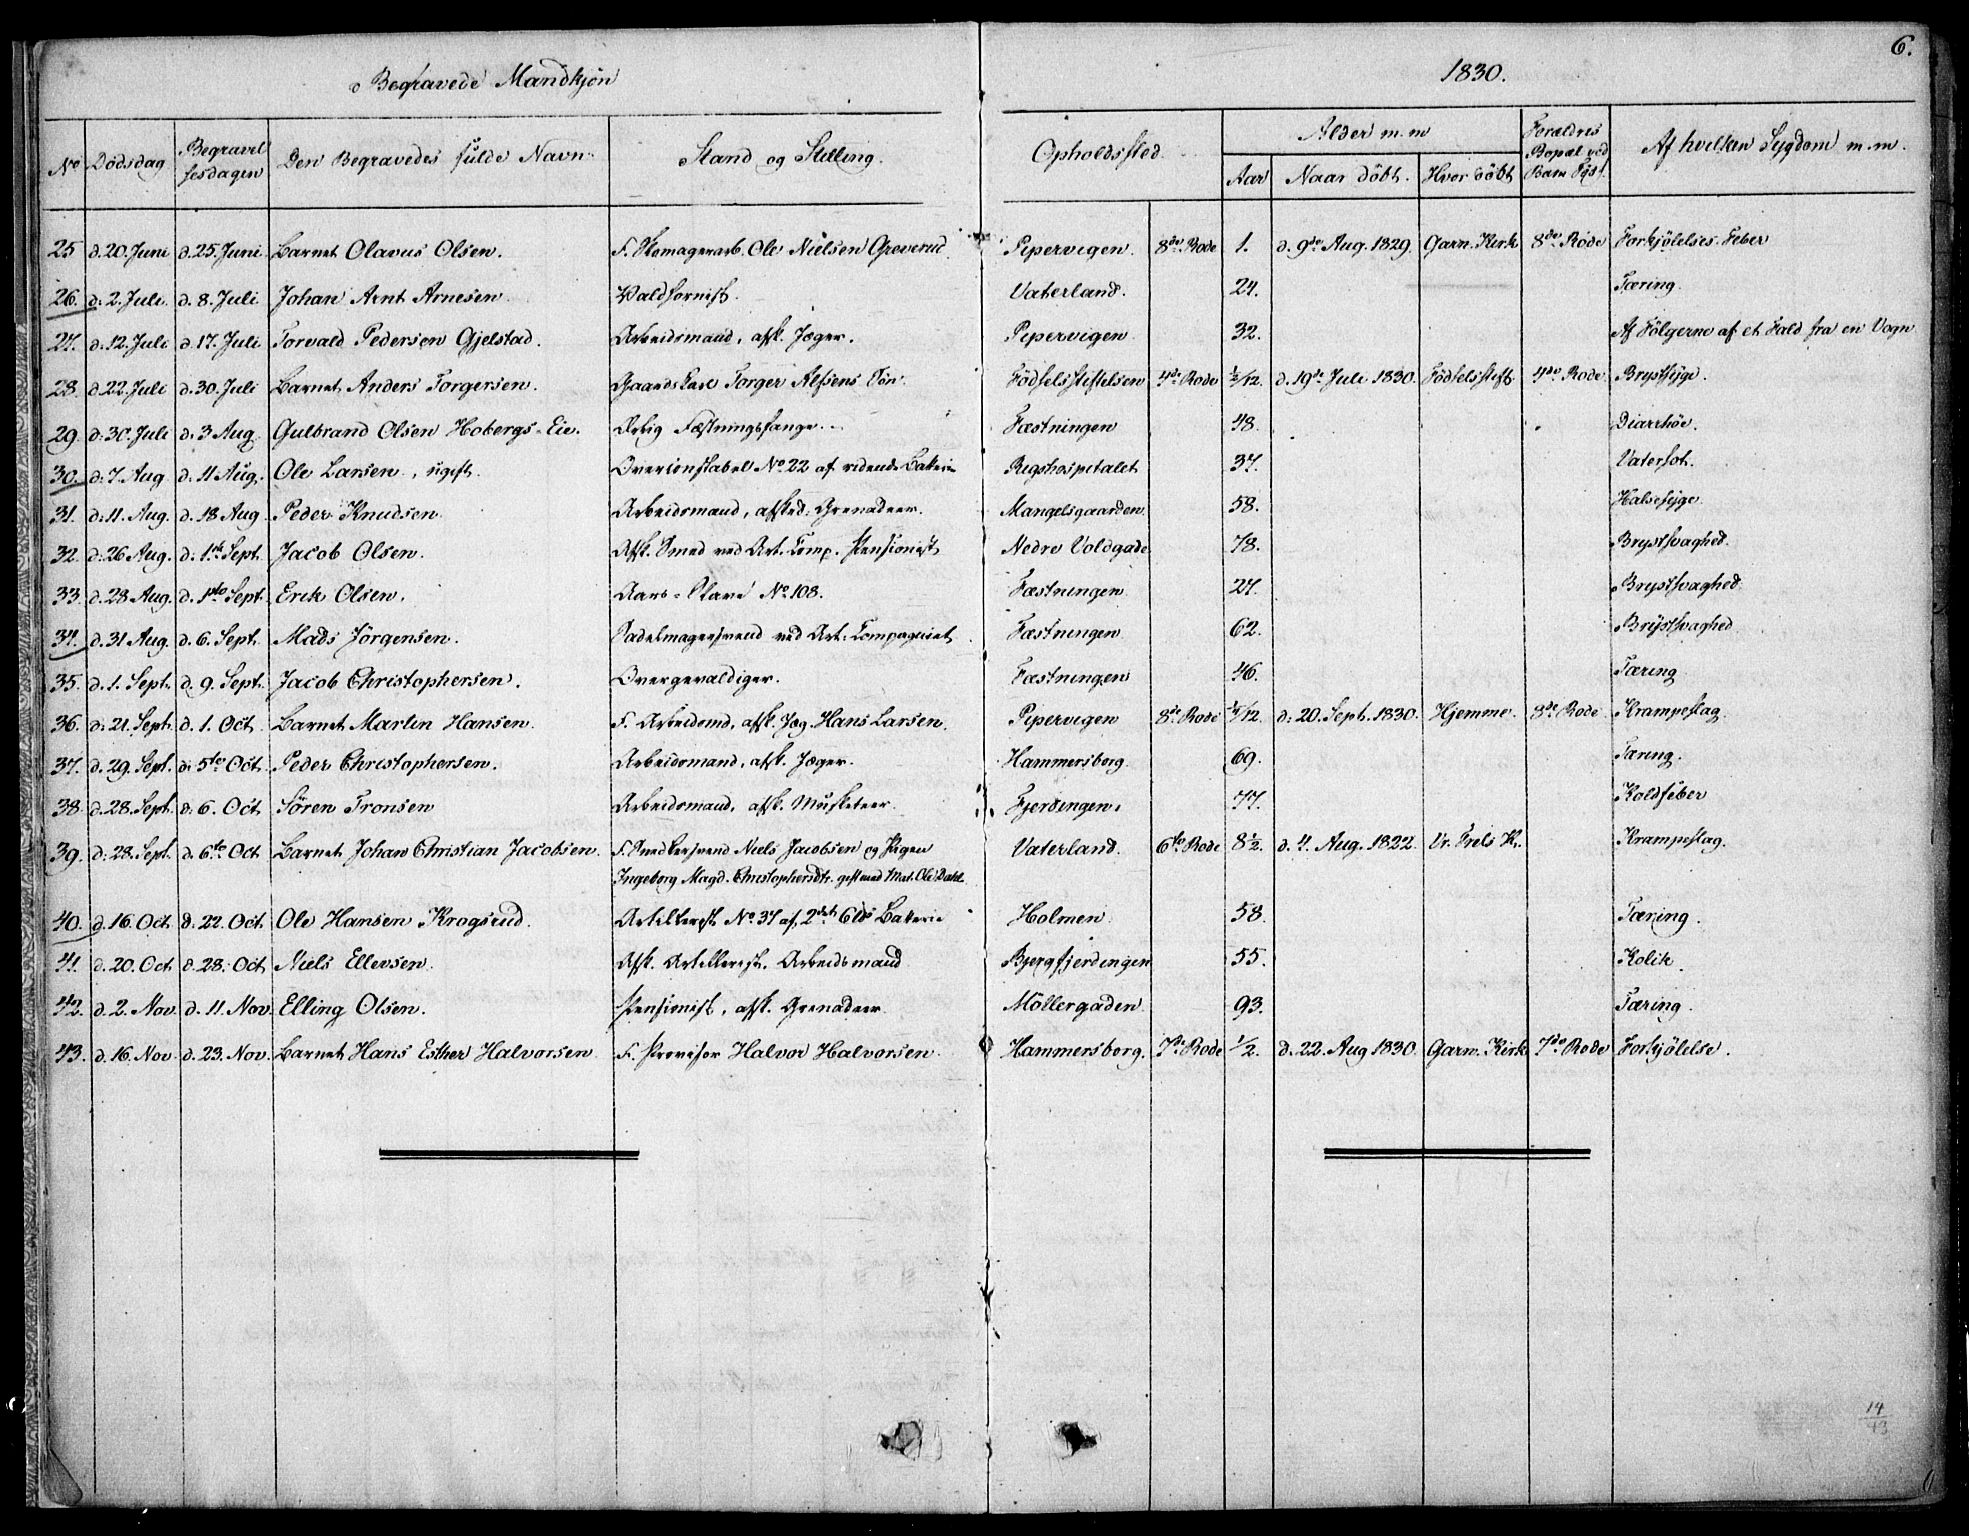 6.
Begravede Mandkjøn
1830.
No Dödsdag Begravelsesdagen Den Begravedes fulde Navn Stand og Stilling. Opholdssted. Alder m.m Forældres Bopæl ved Af hvilken Sygdom m.m.
Aar Naar döbt. Hvor döbt
25 d. 20. Juni d. 25. Juni Barnet Olavus Olsen. F. Skomagerarb. Ole Nielsen Greverud Pipervigen. 8de Rode 1. d. 9de Aug. 1829. Garn. Kirk 8de Rode Forkjölelses-Feber
26. d. 2. Juli d. 8. Juli Johan Arnt Arnesen Valdhornist. Vaterland. 24. Tæring.
27. d. 12. Juli d. 17. Juli Torvald Pedersen Gjelstad. Arbeidsmand, afsk. Jæger. Pipervigen 32. Af Fölgerne af et Fald fra en Vogn
28. d. 22. Juli d. 30. Juli Barnet Anders Torgersen. Gaardskarl Torger Alfsens Sön. Födselsstiftelsen 4de Rode ½/12. d. 19de Juli 1830. Födselsstift 4de Rode Brystsyge.
29. d. 30. Juli d. 3 Aug. Gulbrand Olsen Hobergs-Eie. Ærlig Fæstningsfange. Fæstningen 48. Diarrhöe.
30. d. 7. Aug d. 11 Aug. Ole Larsen, ugift. Overconstabel No. 22 af ridende Batterie Rigshospitalet 37. Vatersot.
31. d. 11. Aug. d. 18 Aug. Peder Knudsen. Arbeidsmand, afsked. Grenadeer. Mangelsgaarden. 58. Halsesyge
32. d. 26 Aug. d. 1ste Sept. Jacob Olsen. Afsk. Smed ved Art. Comp. Pensionist Nedre Voldgade 78. Brystsvaghed.
33. d. 28 Aug. d. 1ste Sept. Erik Olsen. Aars-Slave No. 108. Fæstningen 27. Brystsvaghed.
34. d. 31 Aug. d. 6. Sept. Mads Jörgensen. Sadelmagersvend ved Art: Compagniet Fæstningen 62. Brystsvaghed.
35. d. 1. Sept. d. 9. Sept. Jacob Christophersen. Overgevaldiger. Fæstningen 46. Tæring
36. d. 21. Sept. d. 1. Oct. Barnet Martin Hansen. F. Arbeidsmd, afsk. Jæg. Hans Larsen. Pipervigen 8de Rode d. 20. Sept. 1830. Hjemme. 8de Rode Krampeslag
37. d. 29. Sept. d. 5te Oct. Peder Christophersen. Arbeidsmand, afsk. Jæger. Hammersborg. 69. Tæring.
38. d. 28. Sept. d. 6. Oct Sören Tronsen Arbeidsmand, afsk. Musketeer. Fjerdingen. 77. Koldfeber
39. d. 28. Sept. d. 6te Oct Barnet Johan Christian Jacobsen. F. Snedkersvend Niels Jacobsen og Pigen Vaterland. 6te Rode 8½. d. 4. Aug. 1822. Vr. Frels K. Krampeslag.
Ingeborg Magd. Christophersdtr. gift med Mat. Ole Dahl
40. d. 16. Oct d. 22. Oct Ole Hansen Krogsrud. Artillerist No. 37 af 2det 6lds Batterie Holmen. 58. Tæring.
41. d. 20. Oct d. 28. Oct Niels Ellevsen. Afsk. Artillerist. Arbeidsmand Bjergfjerdingen 55. Kolik.
42. d. 2. Nov. d. 11. Nov. Elling Olsen. Pensionist, afsk. Grenadeer Möllergaden 93. Tæring.
43. d. 16. Nov. d. 23. Nov. Barnet Hans Esther Halvorsen F. Provisor Halvor Halvorsen. Hammersborg. 7de Rode ½. d. 22. Aug 1830. Garn. Kirk 7de Rode Forkjölelse.
14
43